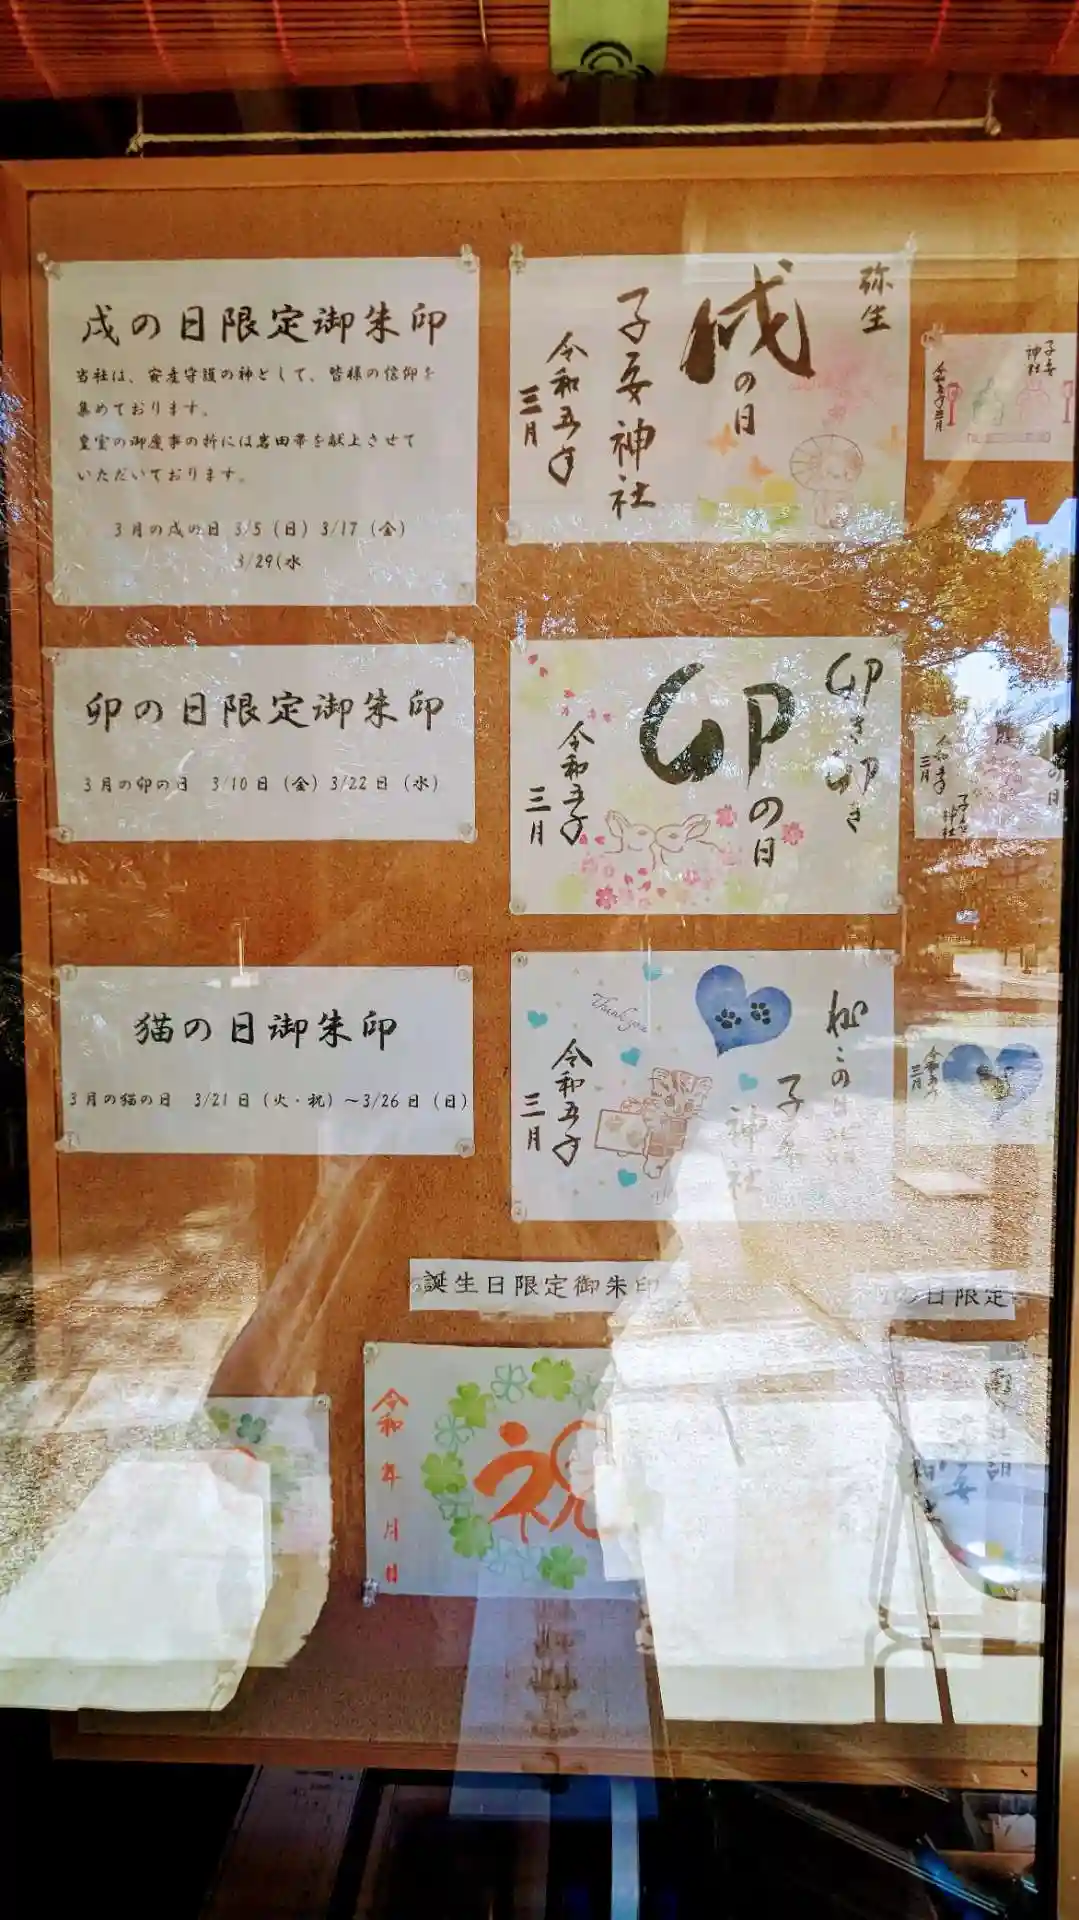 戌の日限定御朱印
当社は、安産守護の神として、皆様の信仰を
集めております。
皇室の御慶事の折には岩田帯を献上させて
いただいております。
3月の戌の日 3/5（日）3/17（金）
3/29(水
弥生
戌の日
子安神社
令和五年
三月
子安
神社
令和五年三月
卯の日限定御朱印
3月の卯の日 3/10日（金）3/22日（水）
卯き卯き
卯の日
令和五年
三月
の日
令和五年
三月
子安
神社
猫の日御朱印
3月の猫の日 3/21日（火・祝）～3/26日（日）
Thank you
ねこの日
子安
神社
令和五年
三月
令和五年
三月
誕生日限定御朱印
の日限定
祝
令和 年 月 日